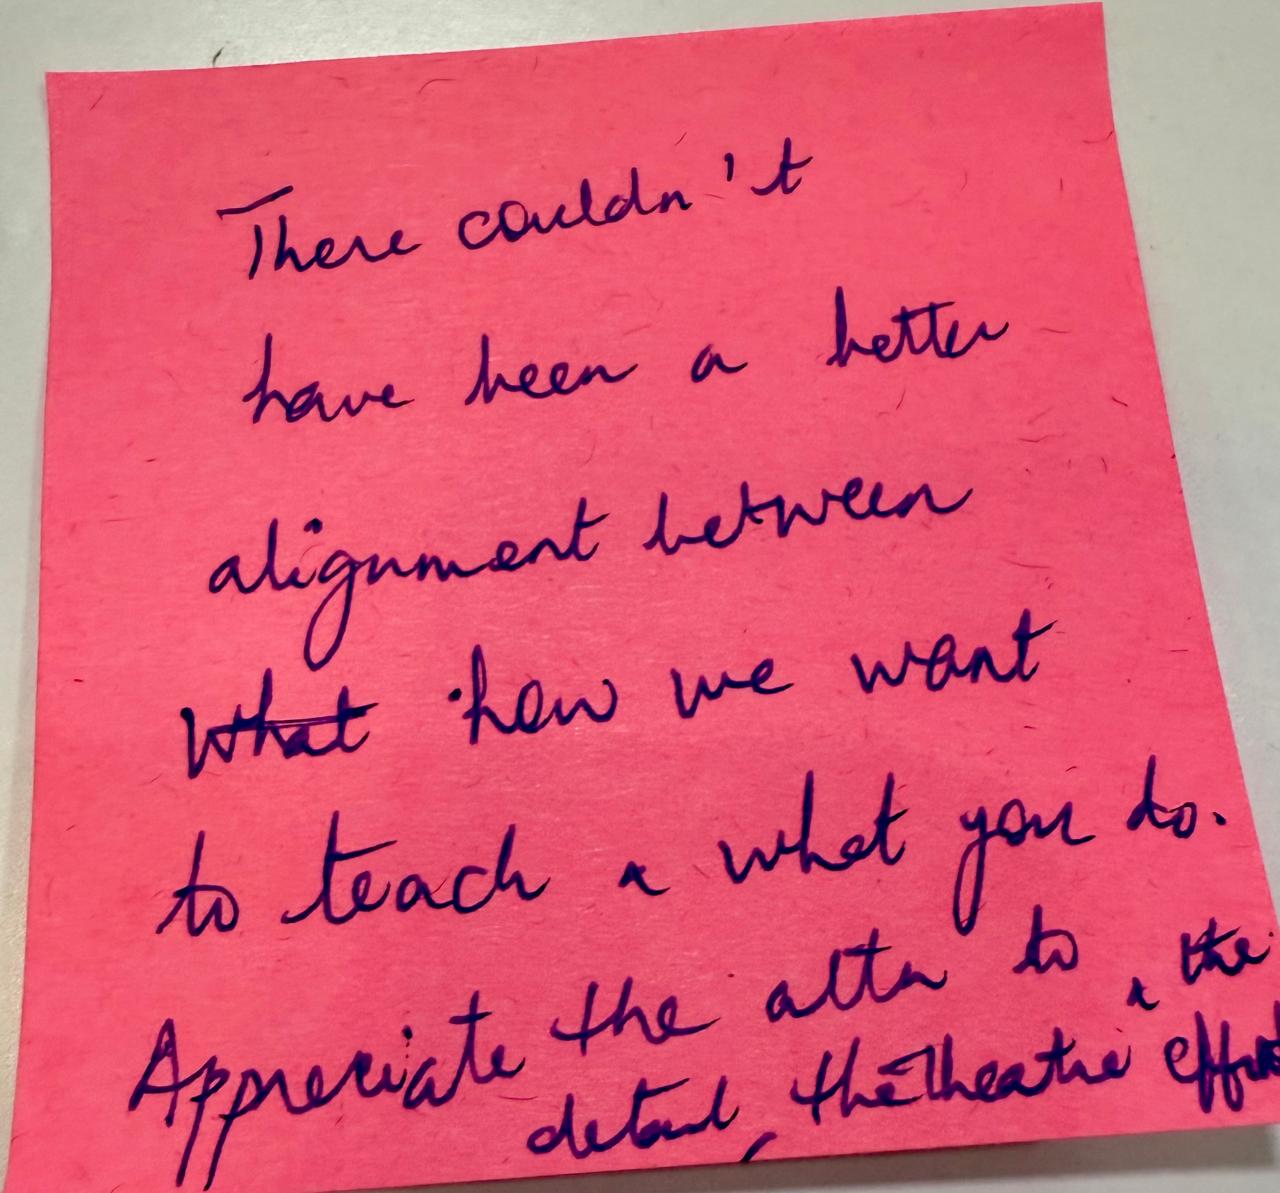 There couldn't
have been a better
alignment between
What how we want
to teach & what you do.
Appreciate the attn to & the
detail, the Theatre effort